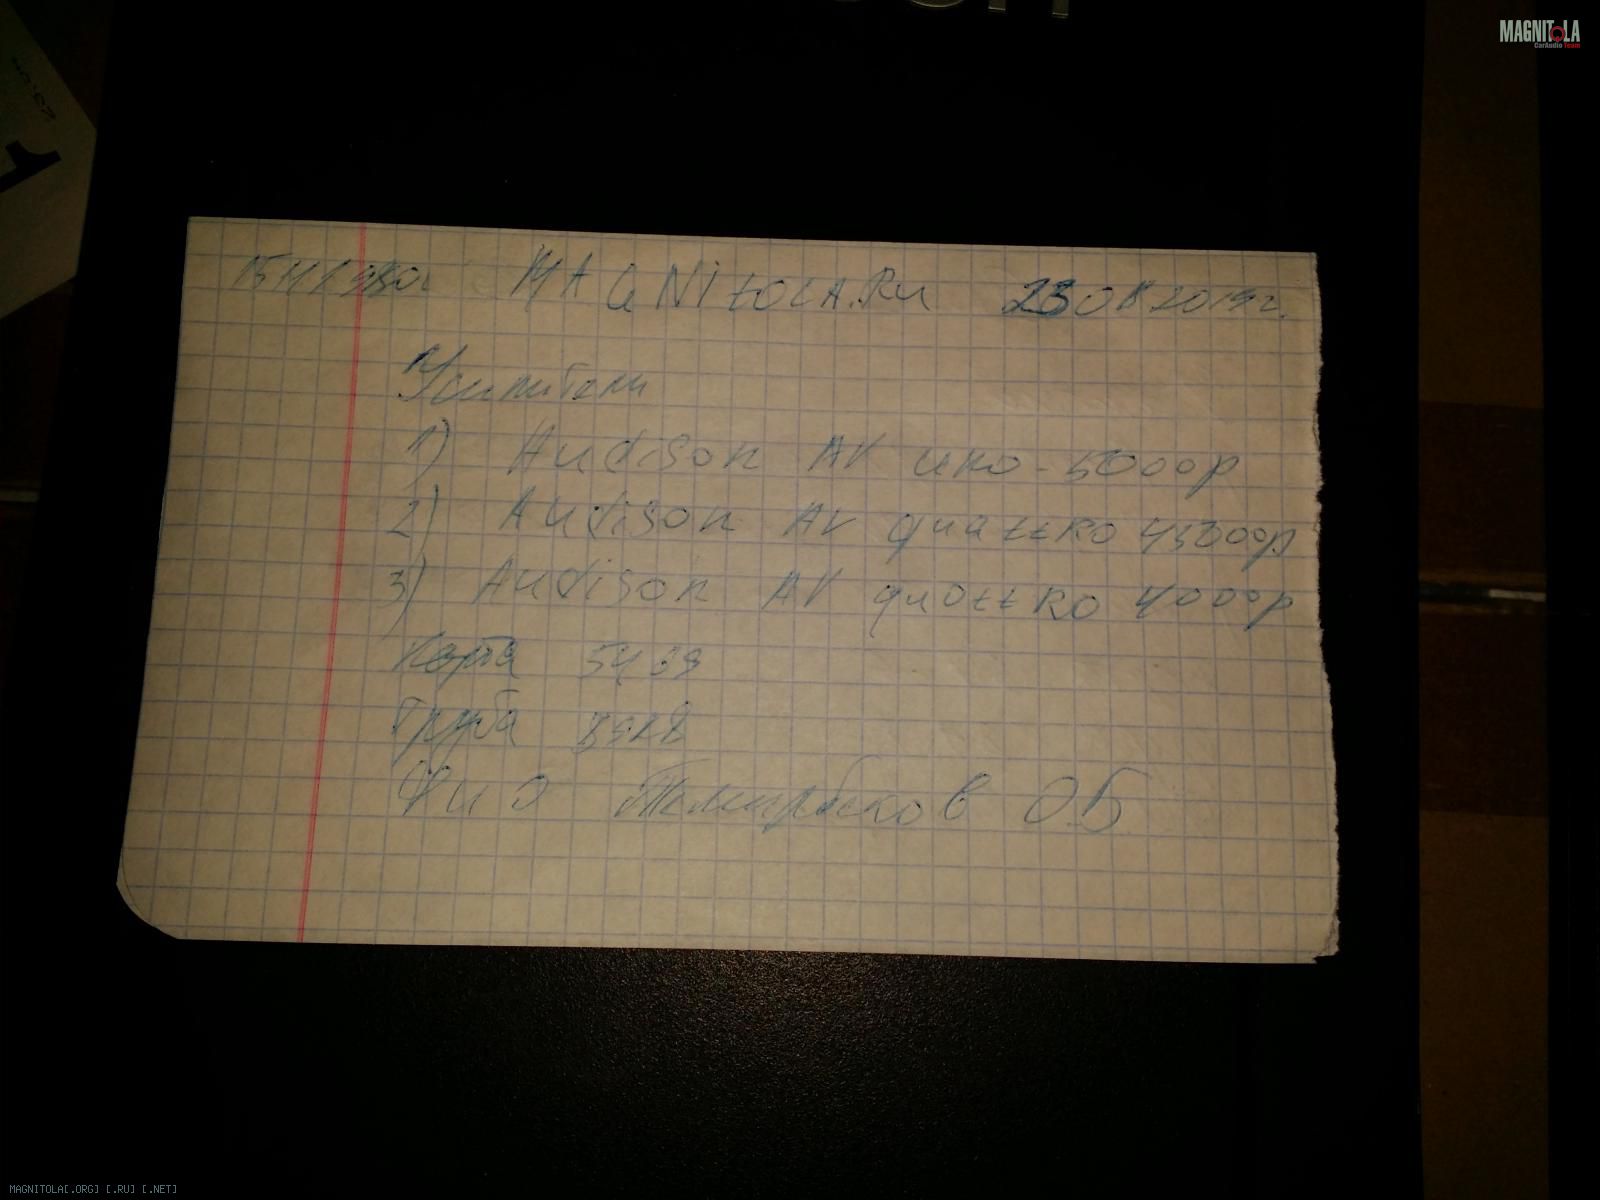 MAGNITOLA
CarAudio Team
MAGNITOLA.Ru 23 08 2019г.
Усилители
1) Audison AV uno - 5000р
2) Audison AV quattro 45000р
3) Audison AV quattro 4000р
Карта 5469
Труба
Фио Темирбеков О.Б
1
MAGNITOLA[.ORG] [.RU] [.NET]